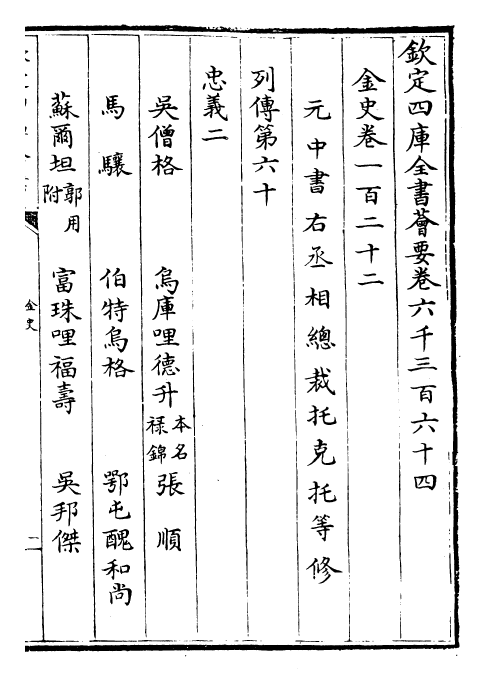 欽定四庫全書薈要卷六千三百六十四
金史卷一百二十二
元中書右丞相總裁托克托等修
列傳第六十
忠義二
吳僧格 烏庫哩德升本名祿錦 張順
馬驤 伯特烏格 鄂屯醜和尚
蘇爾坦郭用附 富珠哩福壽 吳邦傑
金史
二